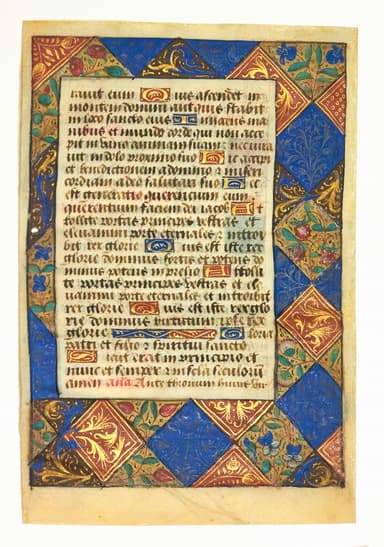 ravit eum Quis ascendet in
montem domini aut quis stabit
in loco sancto eius Innocens ma
nibus et mundo corde qui non acce
pit in vano animam suam nec iura
vit in dolo proximo suo Hic accipi
et benedictionem a domino et miseri
cordiam a deo salutari suo Hec
est generatio querencium eum
querentium faciem dei iacob At
tollite portas principes vestras et
elevamini porte eternales et introi
bit rex glorie Quis est iste rex
glorie dominus fortis et potens do
minus potens in prelio Attollite
portas principes vestras et ele
vamini porte eternales et introibit
rex glorie Quis est iste rex glo
rie dominus virtutum ipse rex
glorie Gloria
patri et filio et spiritui sancto
Sicut erat in principio et
nunc et semper et in secula seculorum
amen ana Ante thronum huius vir